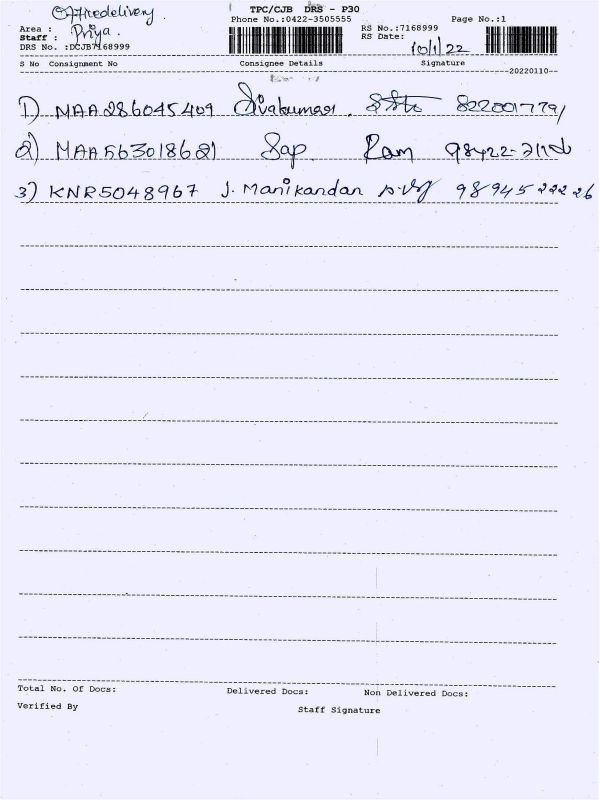 Office delivery
TPC/CJB DRS - P30
Phone No.:0422-3505555
Page No.:1
Area :
Staff : Priya.
DRS No. :DCJB7168999
RS No.:7168999
RS Date: 10/1/22
S No Consignment No Consignee Details Signature
20220110
1) MAA286045409 Sivakumar. 8220017791
2) MAA563018621 Sap Ram 98422-
3) KNR5048967 J. Manikandan 9894522226
Total No. Of Docs: Delivered Docs: Non Delivered Docs:
Verified By Staff Signature